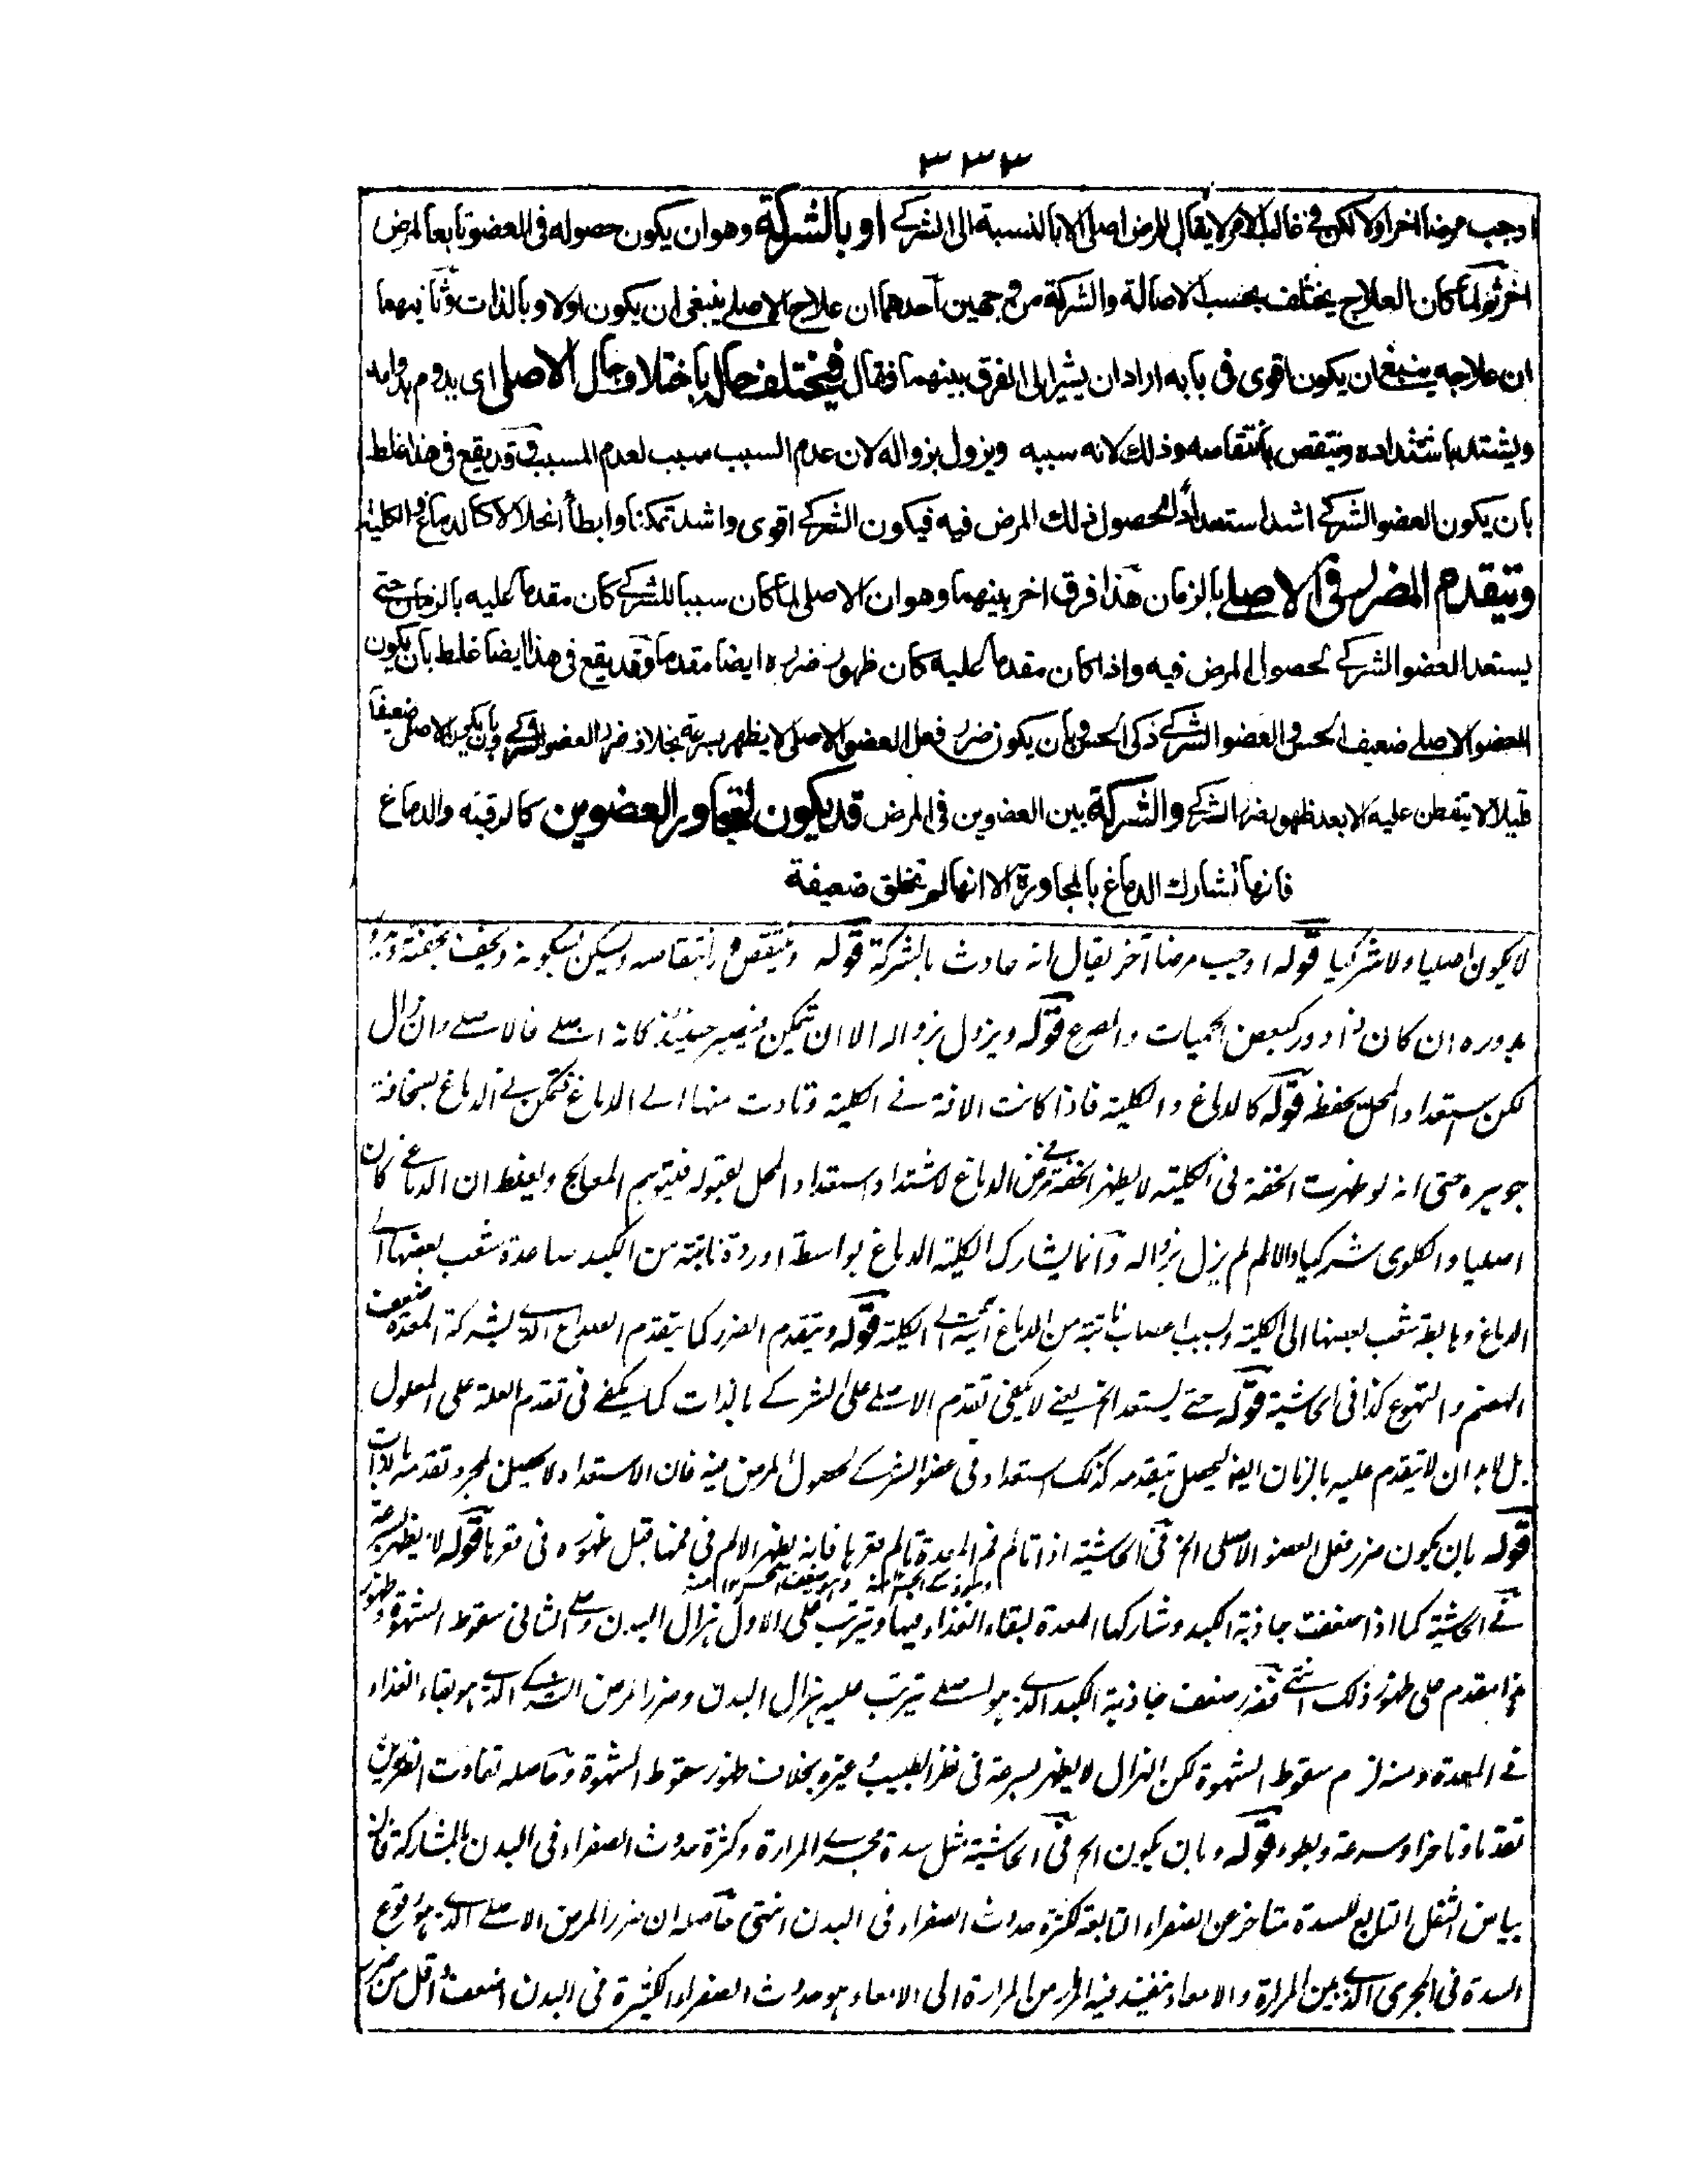 ٣٣٣
اوجب مرضا اخر اولا لكن في غالب الامر لا يقال للمرض اصلى الا بالنسبة الى الشركے او بالشركة وهو ان يكون حصوله فى العضو تابعا لمرض
اخر ثم لما كان العلاج يختلف بحسب الاصالة والشركة من وجهين احدهما ان علاج الاصلے ينبغى ان يكون اولا وبالذات وثانيهما
ان علاجه ينبغے ان يكون اقوى فى بابه اراد ان يشير الى الفرق بينهما فقال فيختلف حاله باختلاف حال الاصلے اى يدوم بدوامه
ويشتد باشتداده وينتقص بانتقاصه وذلك لانه سببه ويزول بزواله لان عدم السبب سبب لعدم المسبب وقد يقع فى هذا غلط
بان يكون العضو الشركے اشد استعدادا لحصول ذلك المرض فيه فيكون الشركے اقوى واشد تمكنا وابطأ انحلالا كالدماغ والكلية
ويتقدم الضرر فى الاصلے بالزمان هذا فرق اخر بينهما وهو ان الاصلى لما كان سببا للشركے كان مقدما عليه بالزمان حتى
يستعد العضو الشركے لحصول المرض فيه واذا كان مقدما عليه كان ظهور ضرره ايضا مقدما وقد يقع فى هذا ايضا غلط بان يكون
العضو الاصلے ضعيف الحس والعضو الشركے ذكى الحس وبان يكون ضرر فعل العضو الاصلى لا يظهر بسرعة بخلاف ضرر العضو الشركے وبان يكون الاصلى ضعيفا
قليلا لا يتفطن عليه الا بعد ظهور ضرر الشركے والشركة بين العضوين فى المرض قد يكون لتجاور العضوين كالرقبة والدماغ
فانها تشارك الدماغ بالمجاورة الا انها لم تخلق ضعيفة
لا يكون اصليا ولا شركيا قوله اوجب مرضا آخر يقال انه حادث بالشركة قوله وينتقص بانتقاصه ويسكن بسكونه ويخف بخفته ويدور
بدوره ان كان ذا دور كبعض الحميات والصرع قوله ويزول بزواله الا ان تمكن فيصير حينئذ كانه اصلے فالاصلے وان زال
لكن استعداد المحل يحفظه قوله كالدماغ والكلية فاذا كانت الافة فے الكلية وتادت منها الے الدماغ فتمكن فے الدماغ لسخافة
جوهره حتى انه لو ظهرت الخفة فى الكلية لا يظهر الخفة فے مرض الدماغ لاشتداد استعداد المحل لقبوله فيتوهم المعالج ويغلط ان الدماغے كان
اصليا والكلوى شركيا والا لم لم يزل بزواله وانما يشارك الكلية الدماغ بواسطة اوردة نابتة من الكبد صاعدة شعب بعضها الے
الدماغ وهابطة شعب بعضها الى الكلية وبسبب اعصاب نابتة من الدماغ آتية الے الكلية قوله ويتقدم الضرر كما يتقدم الصداع الذے بشركة المعدة ضعف
الهضم والتهوع كذا فى الحاشية قوله حتے يستعد الخ يعنے لا يكفى تقدم الاصلے على الشركے بالذات كما يكفے فى تقدم العلة على المعلول
بل لا بد ان لا يتقدم عليه بالزمان ايضا ليحصل بتقدمه كذلك استعداد فى عضو الشركے لحصول المرض فيه فان الاستعداد لا يحصل لمجرد تقدمه بالذات
قوله بان يكون ضرر فعل العضو الاصلى الخ فى الحاشية اذا تالم فم المعدة بالم قعرها فانه يظهر الالم فى فمها قبل ظهوره فى قعرها قوله لا يظهر بسرعة
فے الحاشية كما اذا ضعفت جاذبة الكبد وشاركها المعدة لبقاء الغذاء فيها ويترتب على الاول هزال البدن وعلے الثانى سقوط الشهوة وظهور
هذا مقدم على ظهور ذلك انتهے فضرر ضعف جاذبة الكبد الذے هو اصلے يترتب عليه هزال البدن وضرر المرض الشركے الذے هو بقاء الغذاء
فے المعدة ومنه لزم سقوط الشهوة لكن الهزال لا يظهر بسرعة فى نظر الطبيب وغيره بخلاف ظهور سقوط الشهوة وحاصله تفاوت الضررين
تقدما وتاخرا وسرعة وبطوء قوله وبان يكون الخ فى الحاشية مثل سدة مجرے المرارة وكثرة حدوث الصفراء فى البدن بالمشاركة فان
بياض الثفل التابع للسدة متاخر عن الصفراء التابعة لكثرة حدوث الصفراء فى البدن انتهى حاصله ان ضرر المرض الاصلے الذے هو وقوع
السدة فى المجرى الذے بين المرارة والامعاء تنفيذ فيه المرار من المرارة الى الامعاء هو حدوث الصفراء الكثيرة فى البدن اضعف واقل من ضرر